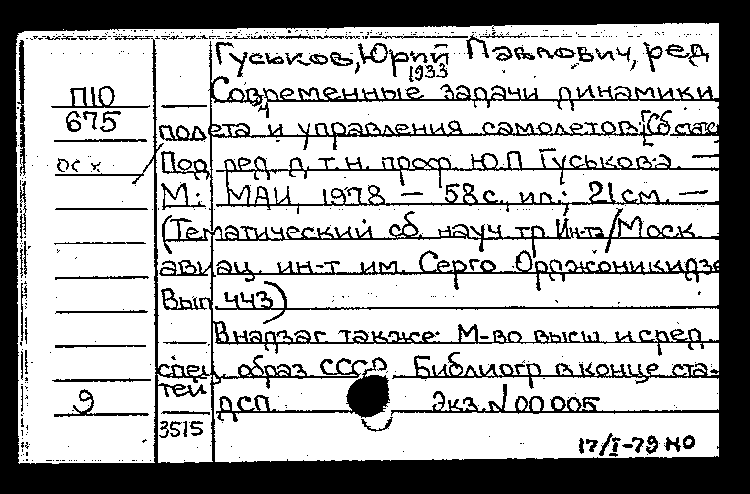 Гуськов, Юрий Павлович, ред
1933
П10
675
осх
Современные задачи динамики
полета и управления самолетов: [Сб статей
Под ред. д. т. н. проф. Ю.П Гуськова. —
М: МАИ, 1978 — 58 с., ил.; 21 см. —
(Тематический сб. науч тр Ин-та/Моск
авиац. ин-т им. Серго Орджоникидзе
Вып. 443)
В надзаг также: М-во высш и сред.
спец. образ СССР. Библиогр в конце ста-
тей
9
ДСП. Экз. № 00005
3515
17/I-79 НО